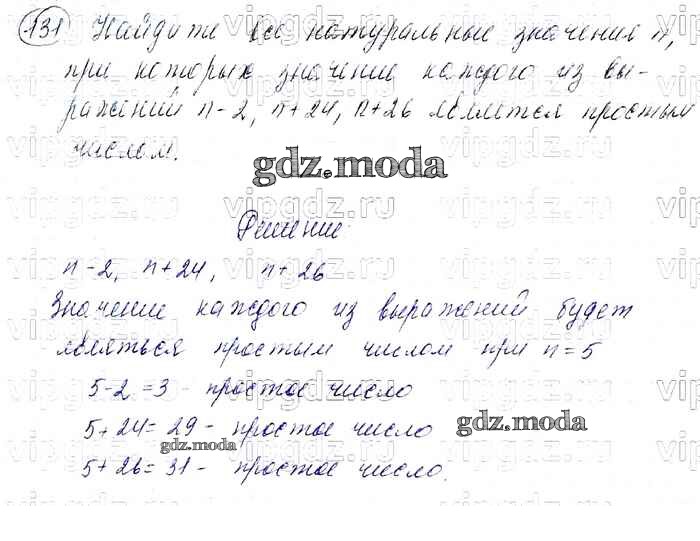 131 Найдите все натуральные значения n,
при которых значение каждого из вы-
ражений n-2, n+24, n+26 является простым
числом.
gdz.moda
Решение
n-2, n+24, n+26
Значение каждого из выражений будет
являться простым числом при n=5
5-2=3 - простое число
5+24=29 - простое число
gdz.moda
gdz.moda
5+26=31 - простое число.